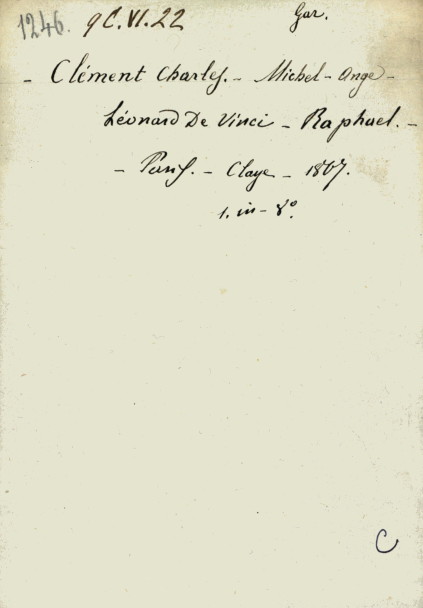 1246. 9 C. VI. 22 Gar.
- Clément Charles. - Michel-Ange -
Léonard De Vinci - Raphael. -
- Paris. - Claye - 1867.
1. in-8°.
C